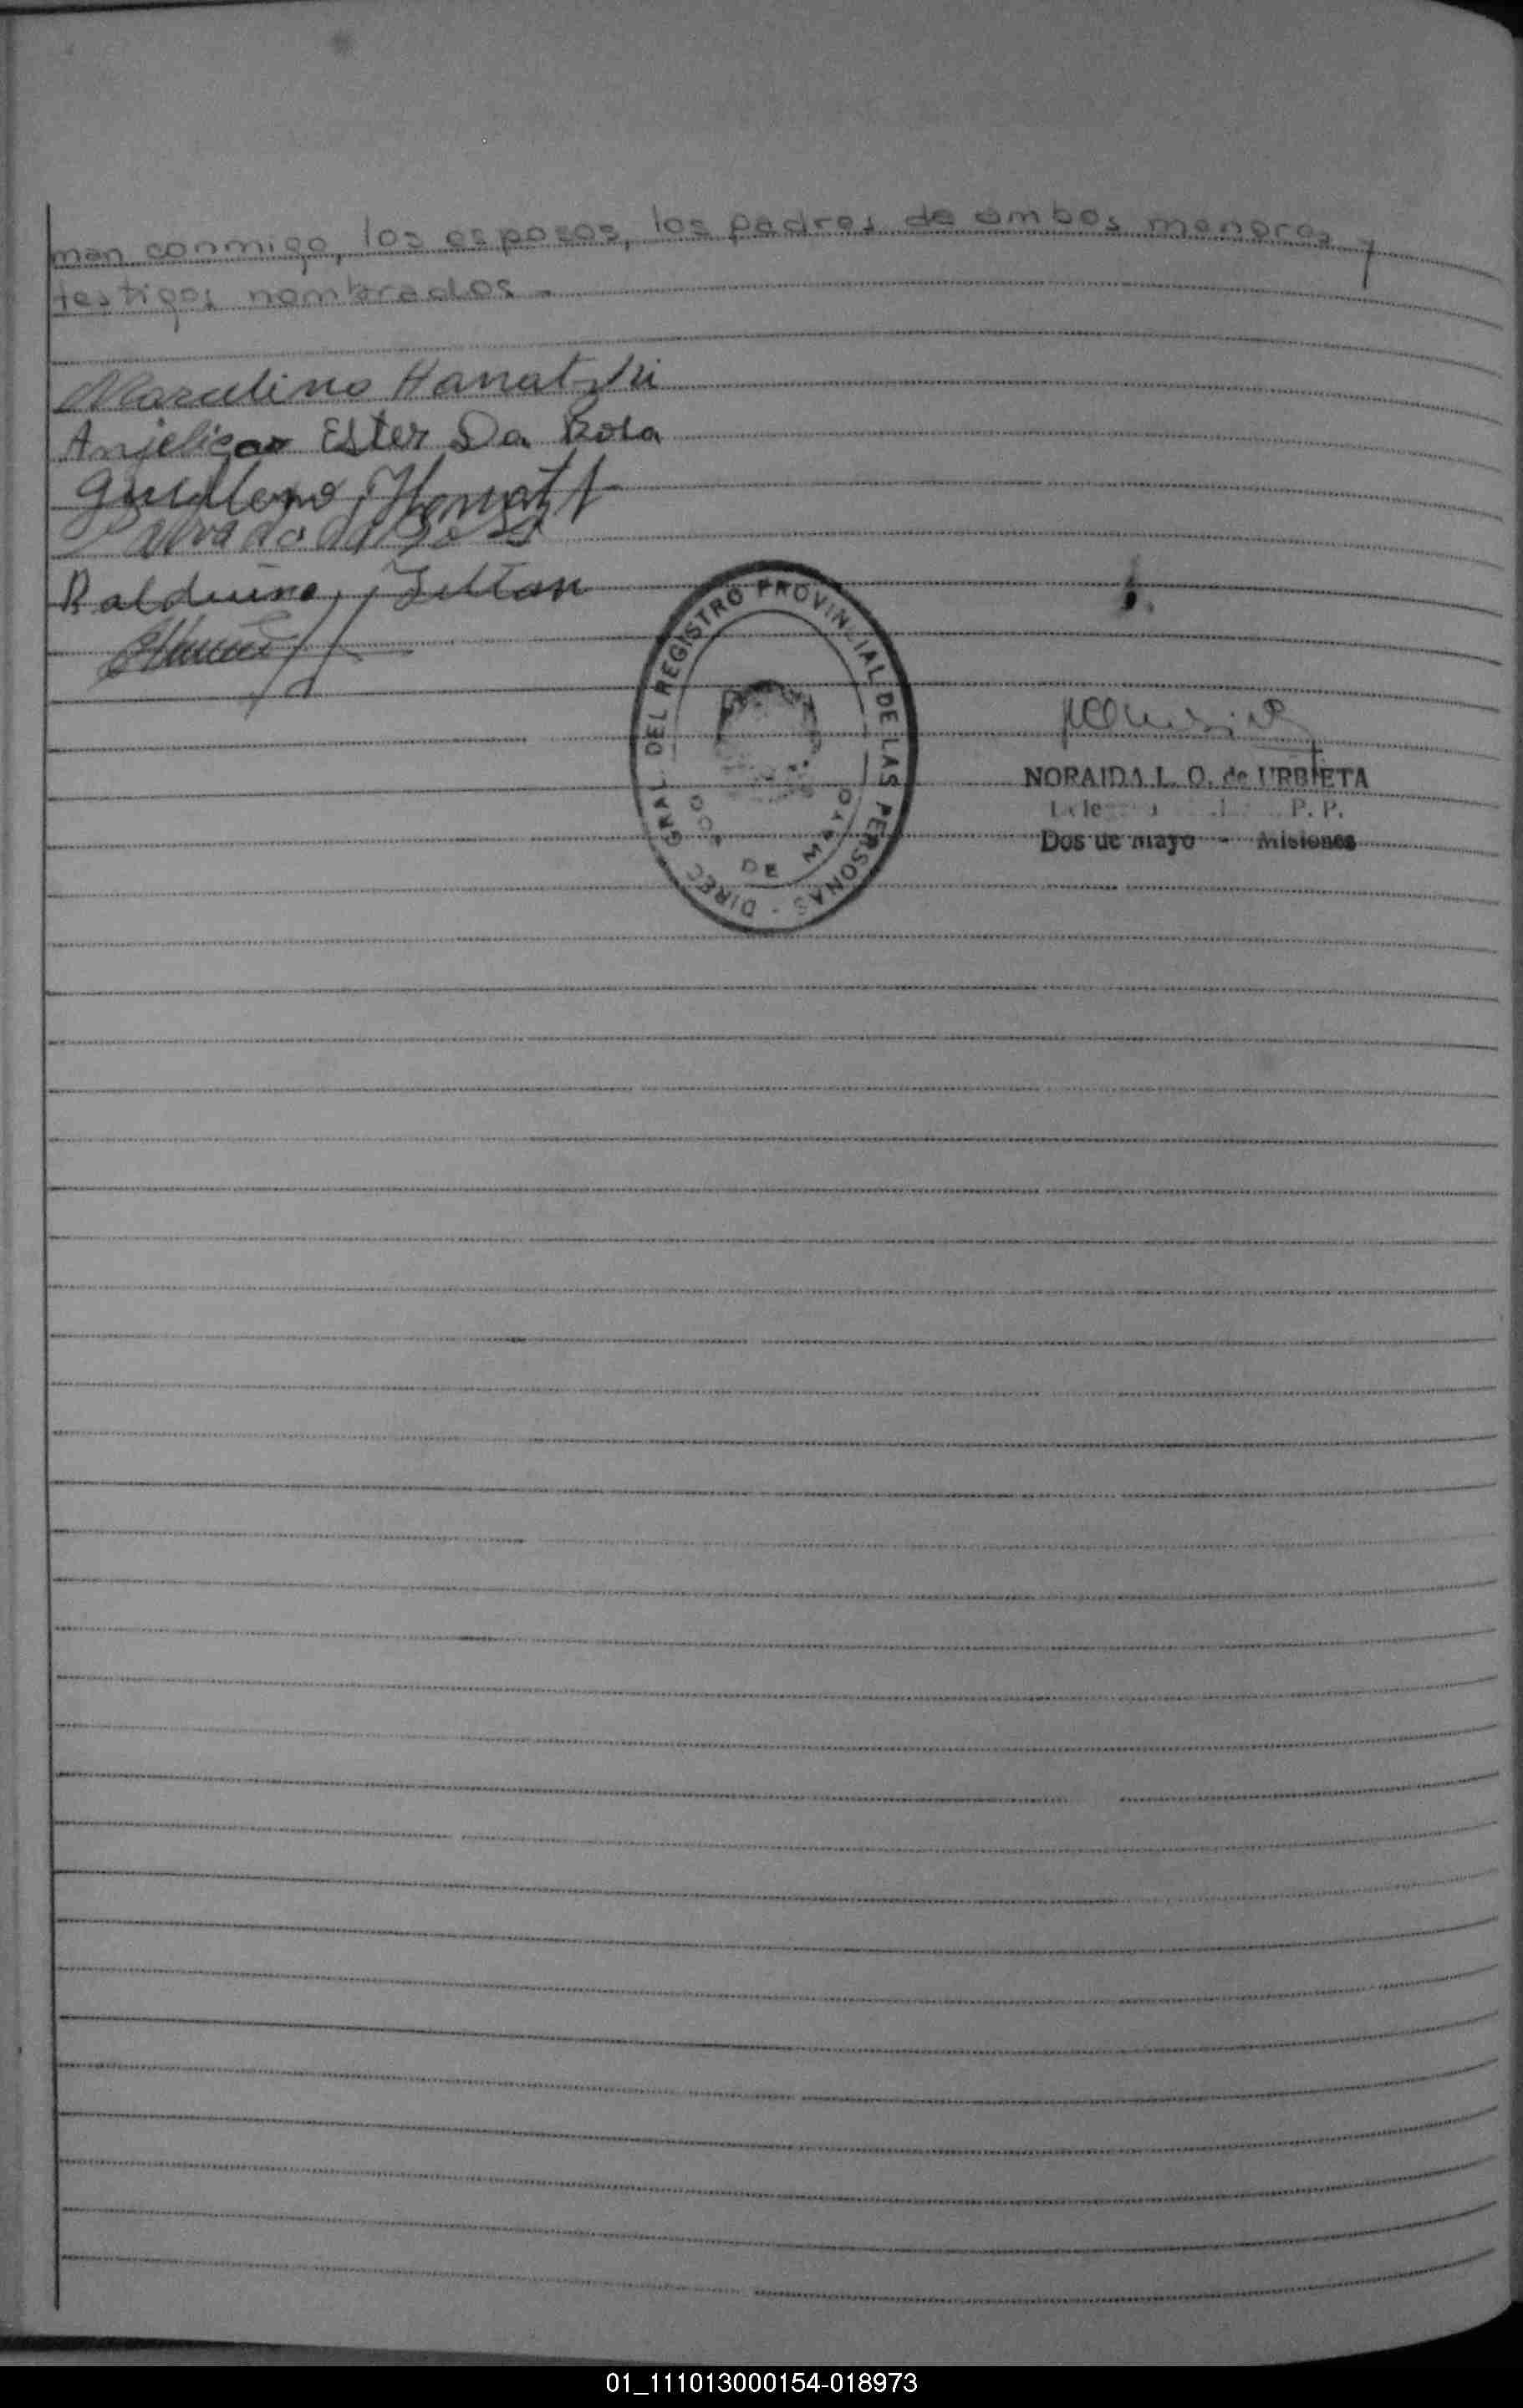 man conmigo, los esposos, los padres de ambos menores y
testigos nombrados.-
Marcelino Hanatzki
Anjelica Ester Da Rosa
Guillermo
Balduino
DIREC GRAL DEL REGISTRO PROVINCIAL DE LAS PERSONAS -
DOS DE MAYO
NORAIDA L. O. de URBIETA
P. P.
Dos de mayo - Misiones
01_111013000154-018973